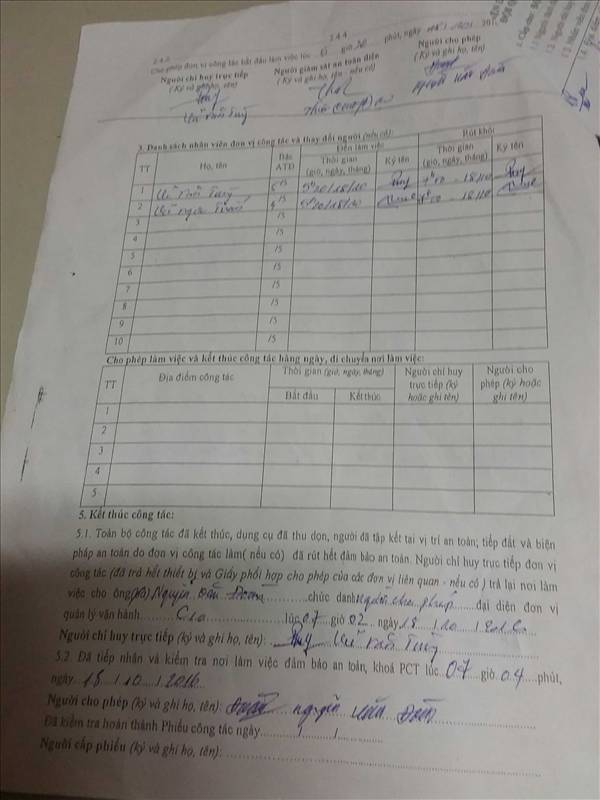 2.4.4
2.4.5 Cho phép đơn vị công tác bắt đầu làm việc lúc 5 giờ 20 phút, ngày
Người chỉ huy trực tiếp Người giám sát an toàn điện Người cho phép
(Ký và ghi họ, tên) (Ký và ghi họ, tên - nếu có) (Ký và ghi họ, tên)
Vũ Văn Tuỳ
3. Danh sách nhân viên đơn vị công tác và thay đổi người (nếu có):
TT Họ, tên Bậc ATĐ Đến làm việc Rút khỏi
Thời gian (giờ, ngày, tháng) Ký tên Thời gian (giờ, ngày, tháng) Ký tên
1 Vũ Văn Tuỳ 5/5 5h20/18/10 18/10
2 Vũ Ngọc 4/5 5h20/18/10 18/10
3 /5
4 /5
5 /5
6 /5
7 /5
8 /5
9 /5
10 /5
Cho phép làm việc và kết thúc công tác hàng ngày, di chuyển nơi làm việc:
TT Địa điểm công tác Thời gian (giờ, ngày, tháng) Người chỉ huy trực tiếp (ký hoặc ghi tên) Người cho phép (ký hoặc ghi tên)
Bắt đầu Kết thúc
1
2
3
4
5
5. Kết thúc công tác:
5.1. Toàn bộ công tác đã kết thúc, dụng cụ đã thu dọn, người đã tập kết tại vị trí an toàn; tiếp đất và biện
pháp an toàn do đơn vị công tác làm( nếu có) đã rút hết đảm bảo an toàn. Người chỉ huy trực tiếp đơn vị
công tác (đã trả hết thiết bị và Giấy phối hợp cho phép của các đơn vị liên quan - nếu có ) trả lại nơi làm
việc cho ông(bà) Nguyễn Văn Đoàn chức danh người cho phép đại diện đơn vị
quản lý vận hành lúc 07 giờ 02 ngày 18 / 10 / 2016
Người chỉ huy trực tiếp (ký và ghi họ, tên): Vũ Văn Tuỳ
5.2. Đã tiếp nhận và kiểm tra nơi làm việc đảm bảo an toàn, khoá PCT lúc 07 giờ 04 phút,
ngày 18 / 10 / 2016
Người cho phép (ký và ghi họ, tên): Nguyễn Văn Đoàn
Đã kiểm tra hoàn thành Phiếu công tác ngày / /
Người cấp phiếu (ký và ghi họ, tên):